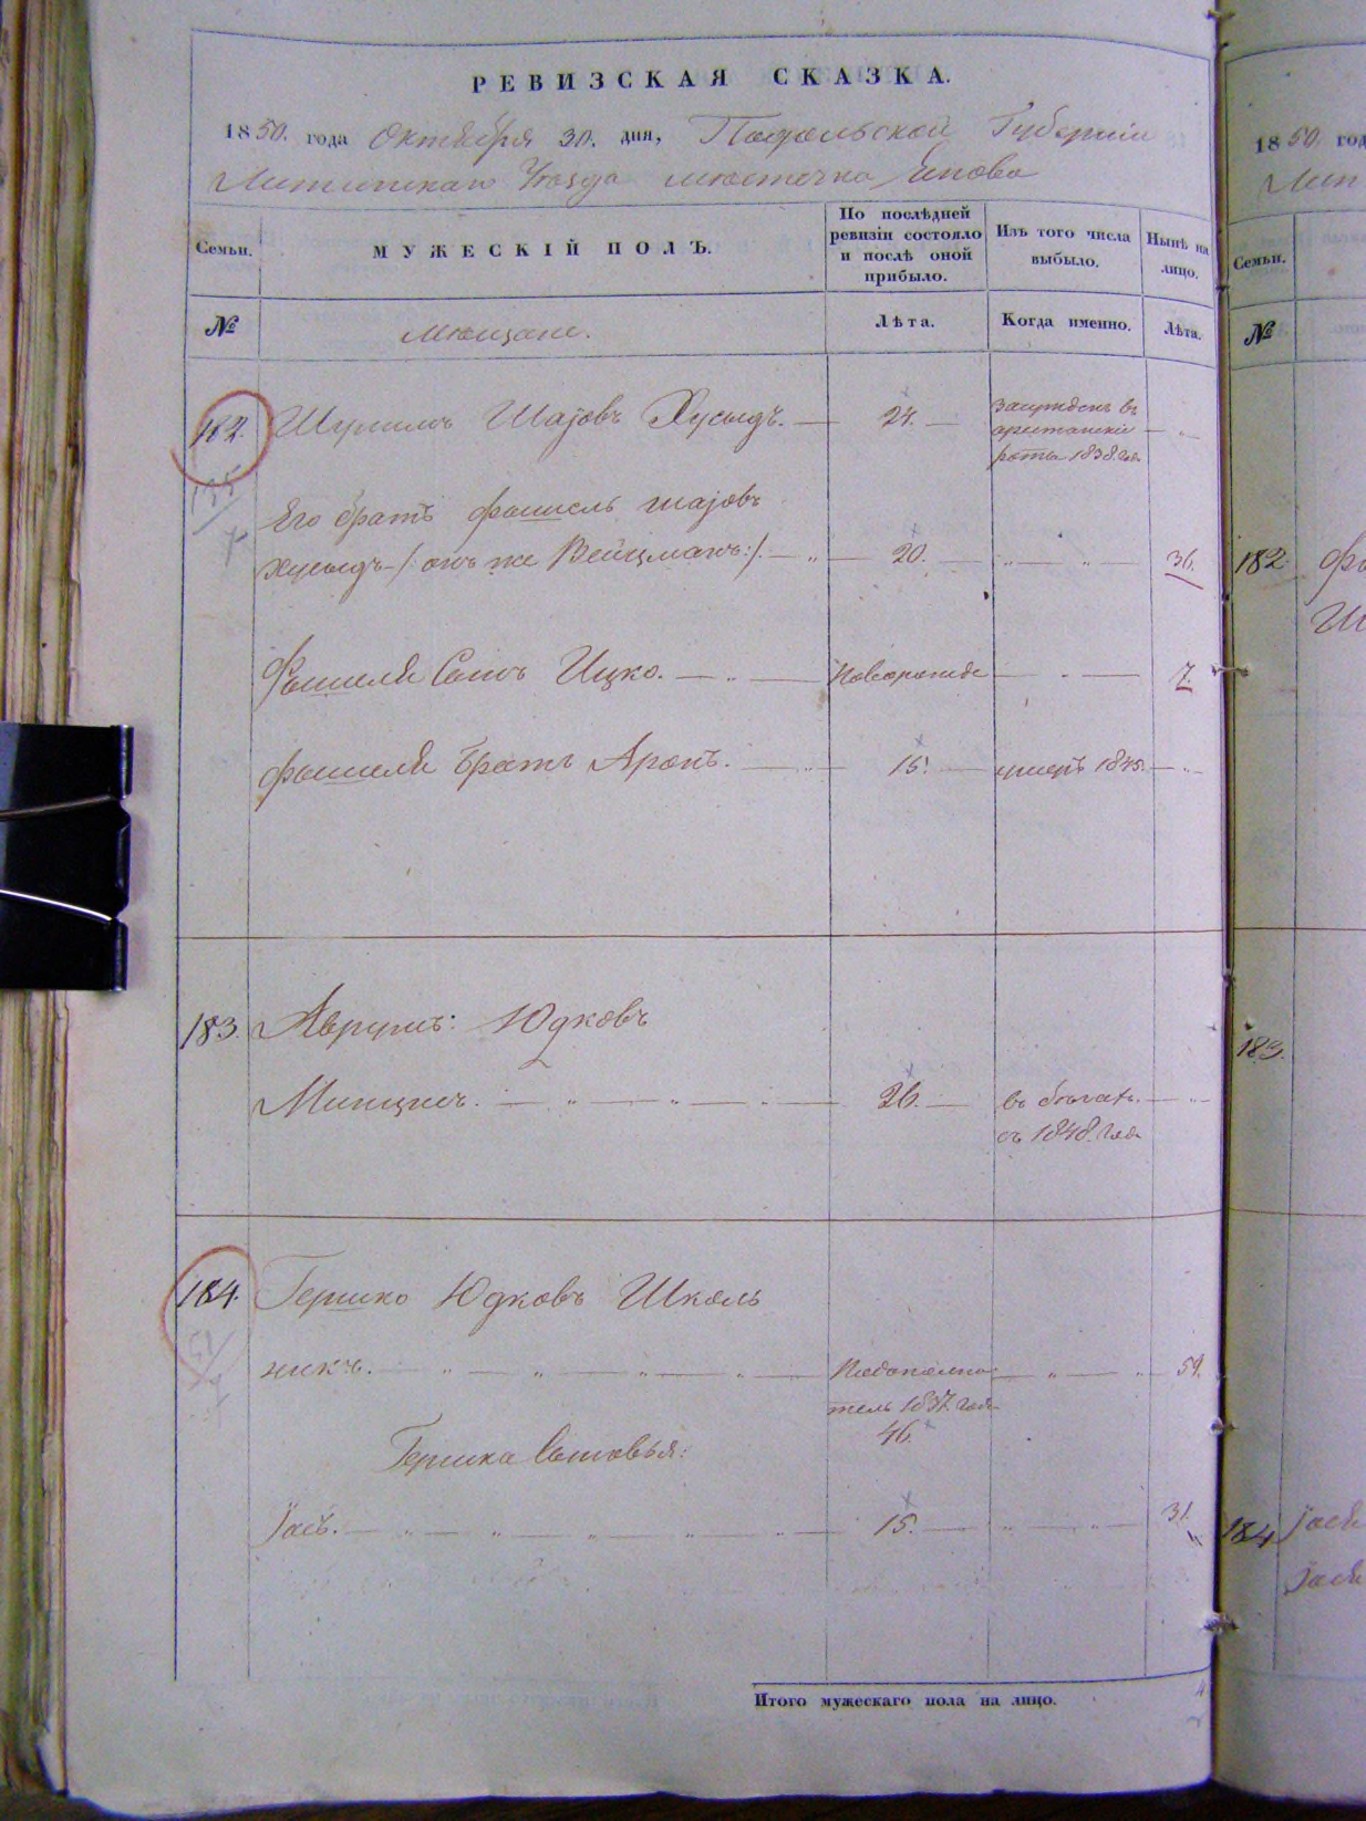 РЕВИЗСКАЯ СКАЗКА.
1850. года Октября 30. дня, Подольской Губерніи
Литинскаго Уезда местечка Янова
Семьи.
МУЖЕСКІЙ ПОЛЪ.
По послѣдней ревизіи состояло и послѣ оной прибыло.
Изъ того числа выбыло.
Нынѣ на лицо.
№
Мещане.
Лѣта.
Когда именно.
Лѣта.
182. Шулимъ Шаjовъ Хусыдъ. 24. Засужденъ въ
арестанскіе
роты 1838. года
135
Его братъ Фишель шаjовъ
Хусыдъ /: онъ же Вейцманъ :/. 20. 36.
Фишеля Сынъ Ицко. Новорожде 7.
Фишеля братъ Аронъ. 15. умеръ 1845.
183. Аврумъ: Юдковъ
Миницысъ. 26. въ бегахъ.
съ 1848. года
184. Гершко Юдковъ Школь
никъ. 59.
1837. года
46.
Гершка Сыновья:
Jосъ. 15. 31.
Итого мужескаго пола на лицо.
1850 год
Лит
Семьи.
№
182. Фи
Ш
183.
184 Jося
Jося